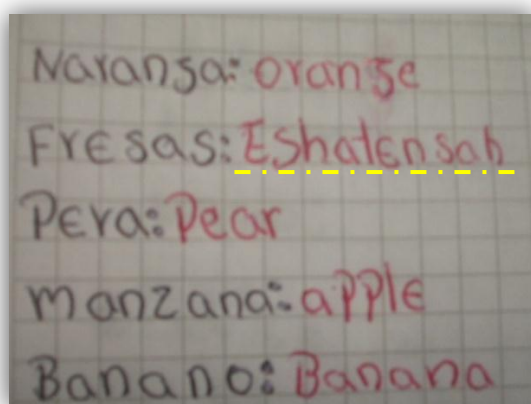 Naranja: orange
Fresas: Eshatensah
Pera: Pear
manzana: apple
Banano: Banana